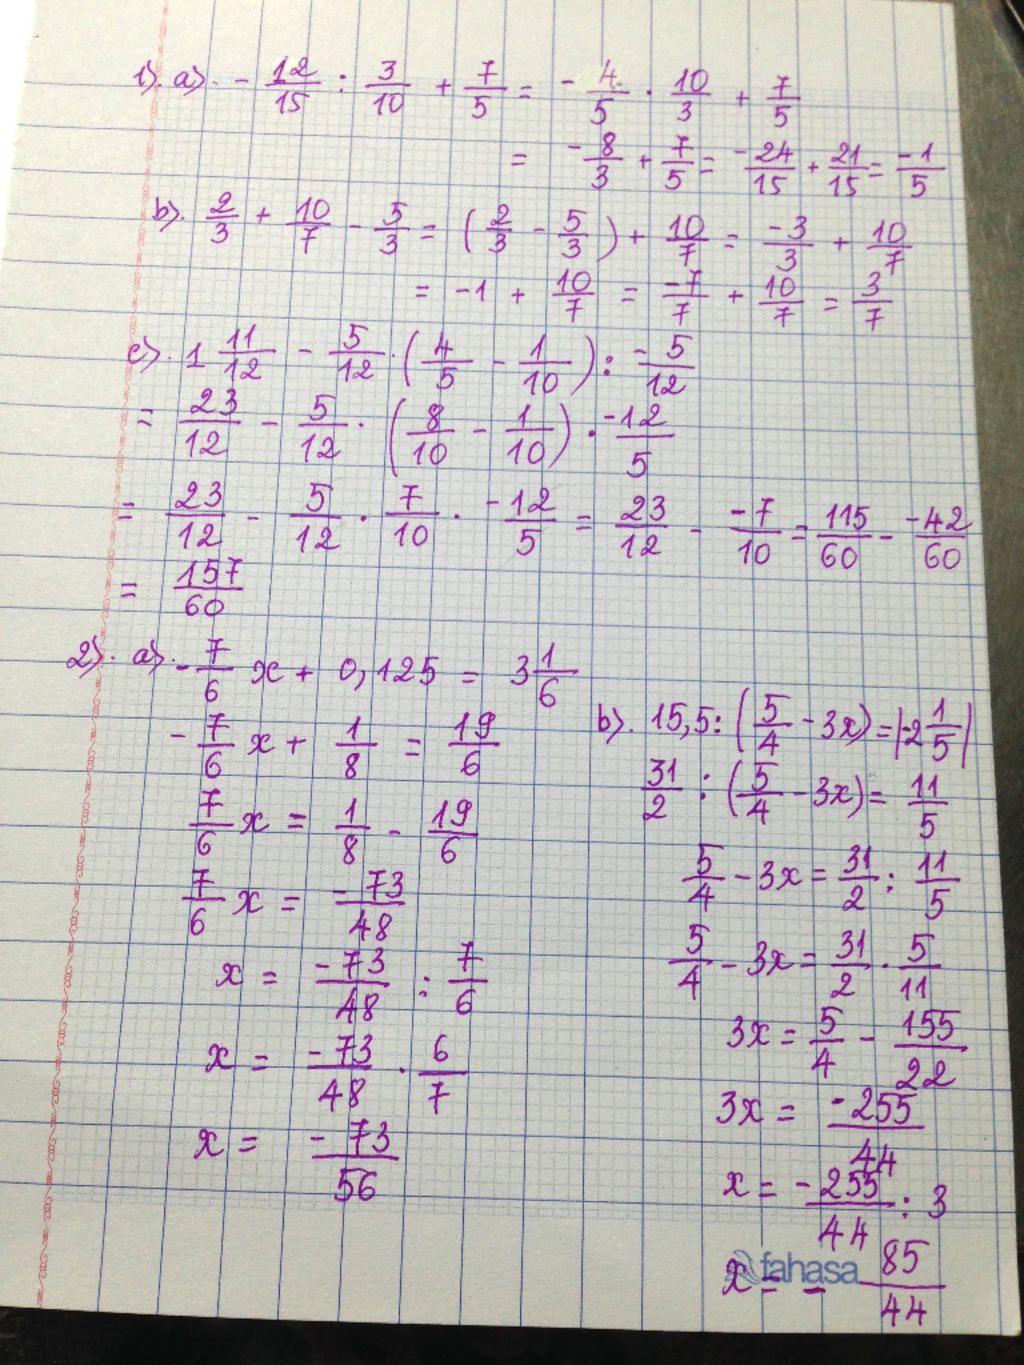 1). a). - 12/15 : 3/10 + 7/5 = - 4/5 . 10/3 + 7/5
= -8/3 + 7/5 = -24/15 + 21/15 = -1/5
b). 2/3 + 10/7 - 5/3 = (2/3 - 5/3) + 10/7 = -3/3 + 10/7
= -1 + 10/7 = -7/7 + 10/7 = 3/7
c). 1 11/12 - 5/12 . (4/5 - 1/10) : -5/12
= 23/12 - 5/12 . (8/10 - 1/10) . -12/5
= 23/12 - 5/12 . 7/10 . -12/5 = 23/12 - -7/10 = 115/60 - -42/60
= 157/60
2). a). -7/6 x + 0,125 = 3 1/6
-7/6 x + 1/8 = 19/6
7/6 x = 1/8 - 19/6
7/6 x = -73/48
x = -73/48 : 7/6
x = -73/48 . 6/7
x = -73/56
b). 15,5 : (5/4 - 3x) = |-2 1/5|
31/2 : (5/4 - 3x) = 11/5
5/4 - 3x = 31/2 : 11/5
5/4 - 3x = 31/2 . 5/11
3x = 5/4 - 155/22
3x = -255/44
x = -255/44 : 3
x = - 85/44
fahasa